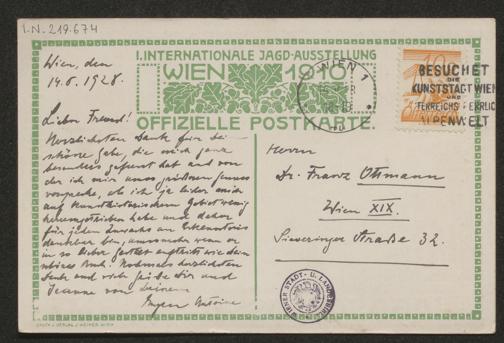 I.N. 219.674
I. INTERNATIONALE JAGD-AUSSTELLUNG
WIEN 1910
OFFIZIELLE POSTKARTE.
WIEN 1
BESUCHET
DIE
KUNSTSTADT WIEN
UND
ÖSTERREICHS HERRLICHE
ALPENWELT
Wien, den
14.6.1928.
Lieber Freund!
Herzlichsten Dank für die
schöne Gabe, die mich ganz
besonders gefreut hat und von
der ich mir einen grössten Genuss
verspreche, als ich ja leider mich
auf kunsthistorischem Gebiet wenig
herumgetrieben habe und daher
für jeden Zuwachs an Erkenntnis
dankbar bin, umsomehr wenn er
in so lieber
Buch. Nochmals herzlichsten
Dank und viele Grüße Dir und
Jeanne von Deinem
Eugen Antoine
Herrn
Dr. Franz Ottmann
Wien XIX.
Sieveringer Straße 32.
WIENER STADT- U. LANDES